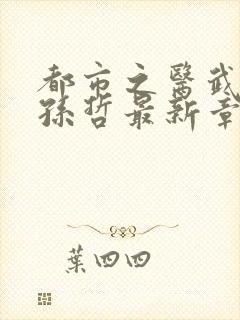 都市之醫武
孫哲最新章
葉四四